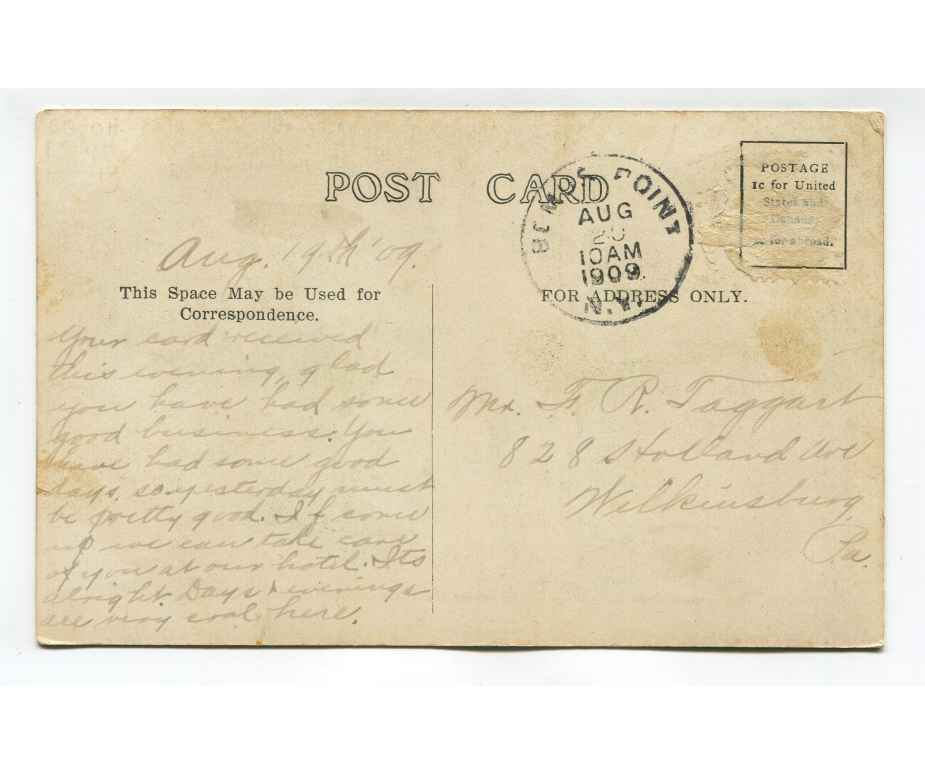 POST CARD
BEMUS POINT
AUG
20
10AM
1909.
N.Y.
POSTAGE
1c for United
States and
for abroad.
Aug. 19th '09.
This Space May be Used for
Correspondence.
FOR ADDRESS ONLY.
Your card received
this evening, glad
you have had some
good business. You
have had some good
days, so yesterday must
be pretty good. If come
up we can take care
of you at our hotel. Its
alright Days & evenings
are very cool here.
Mr. F. R. Taggart
828 Holland Ave
Wilkinsburg
Pa.